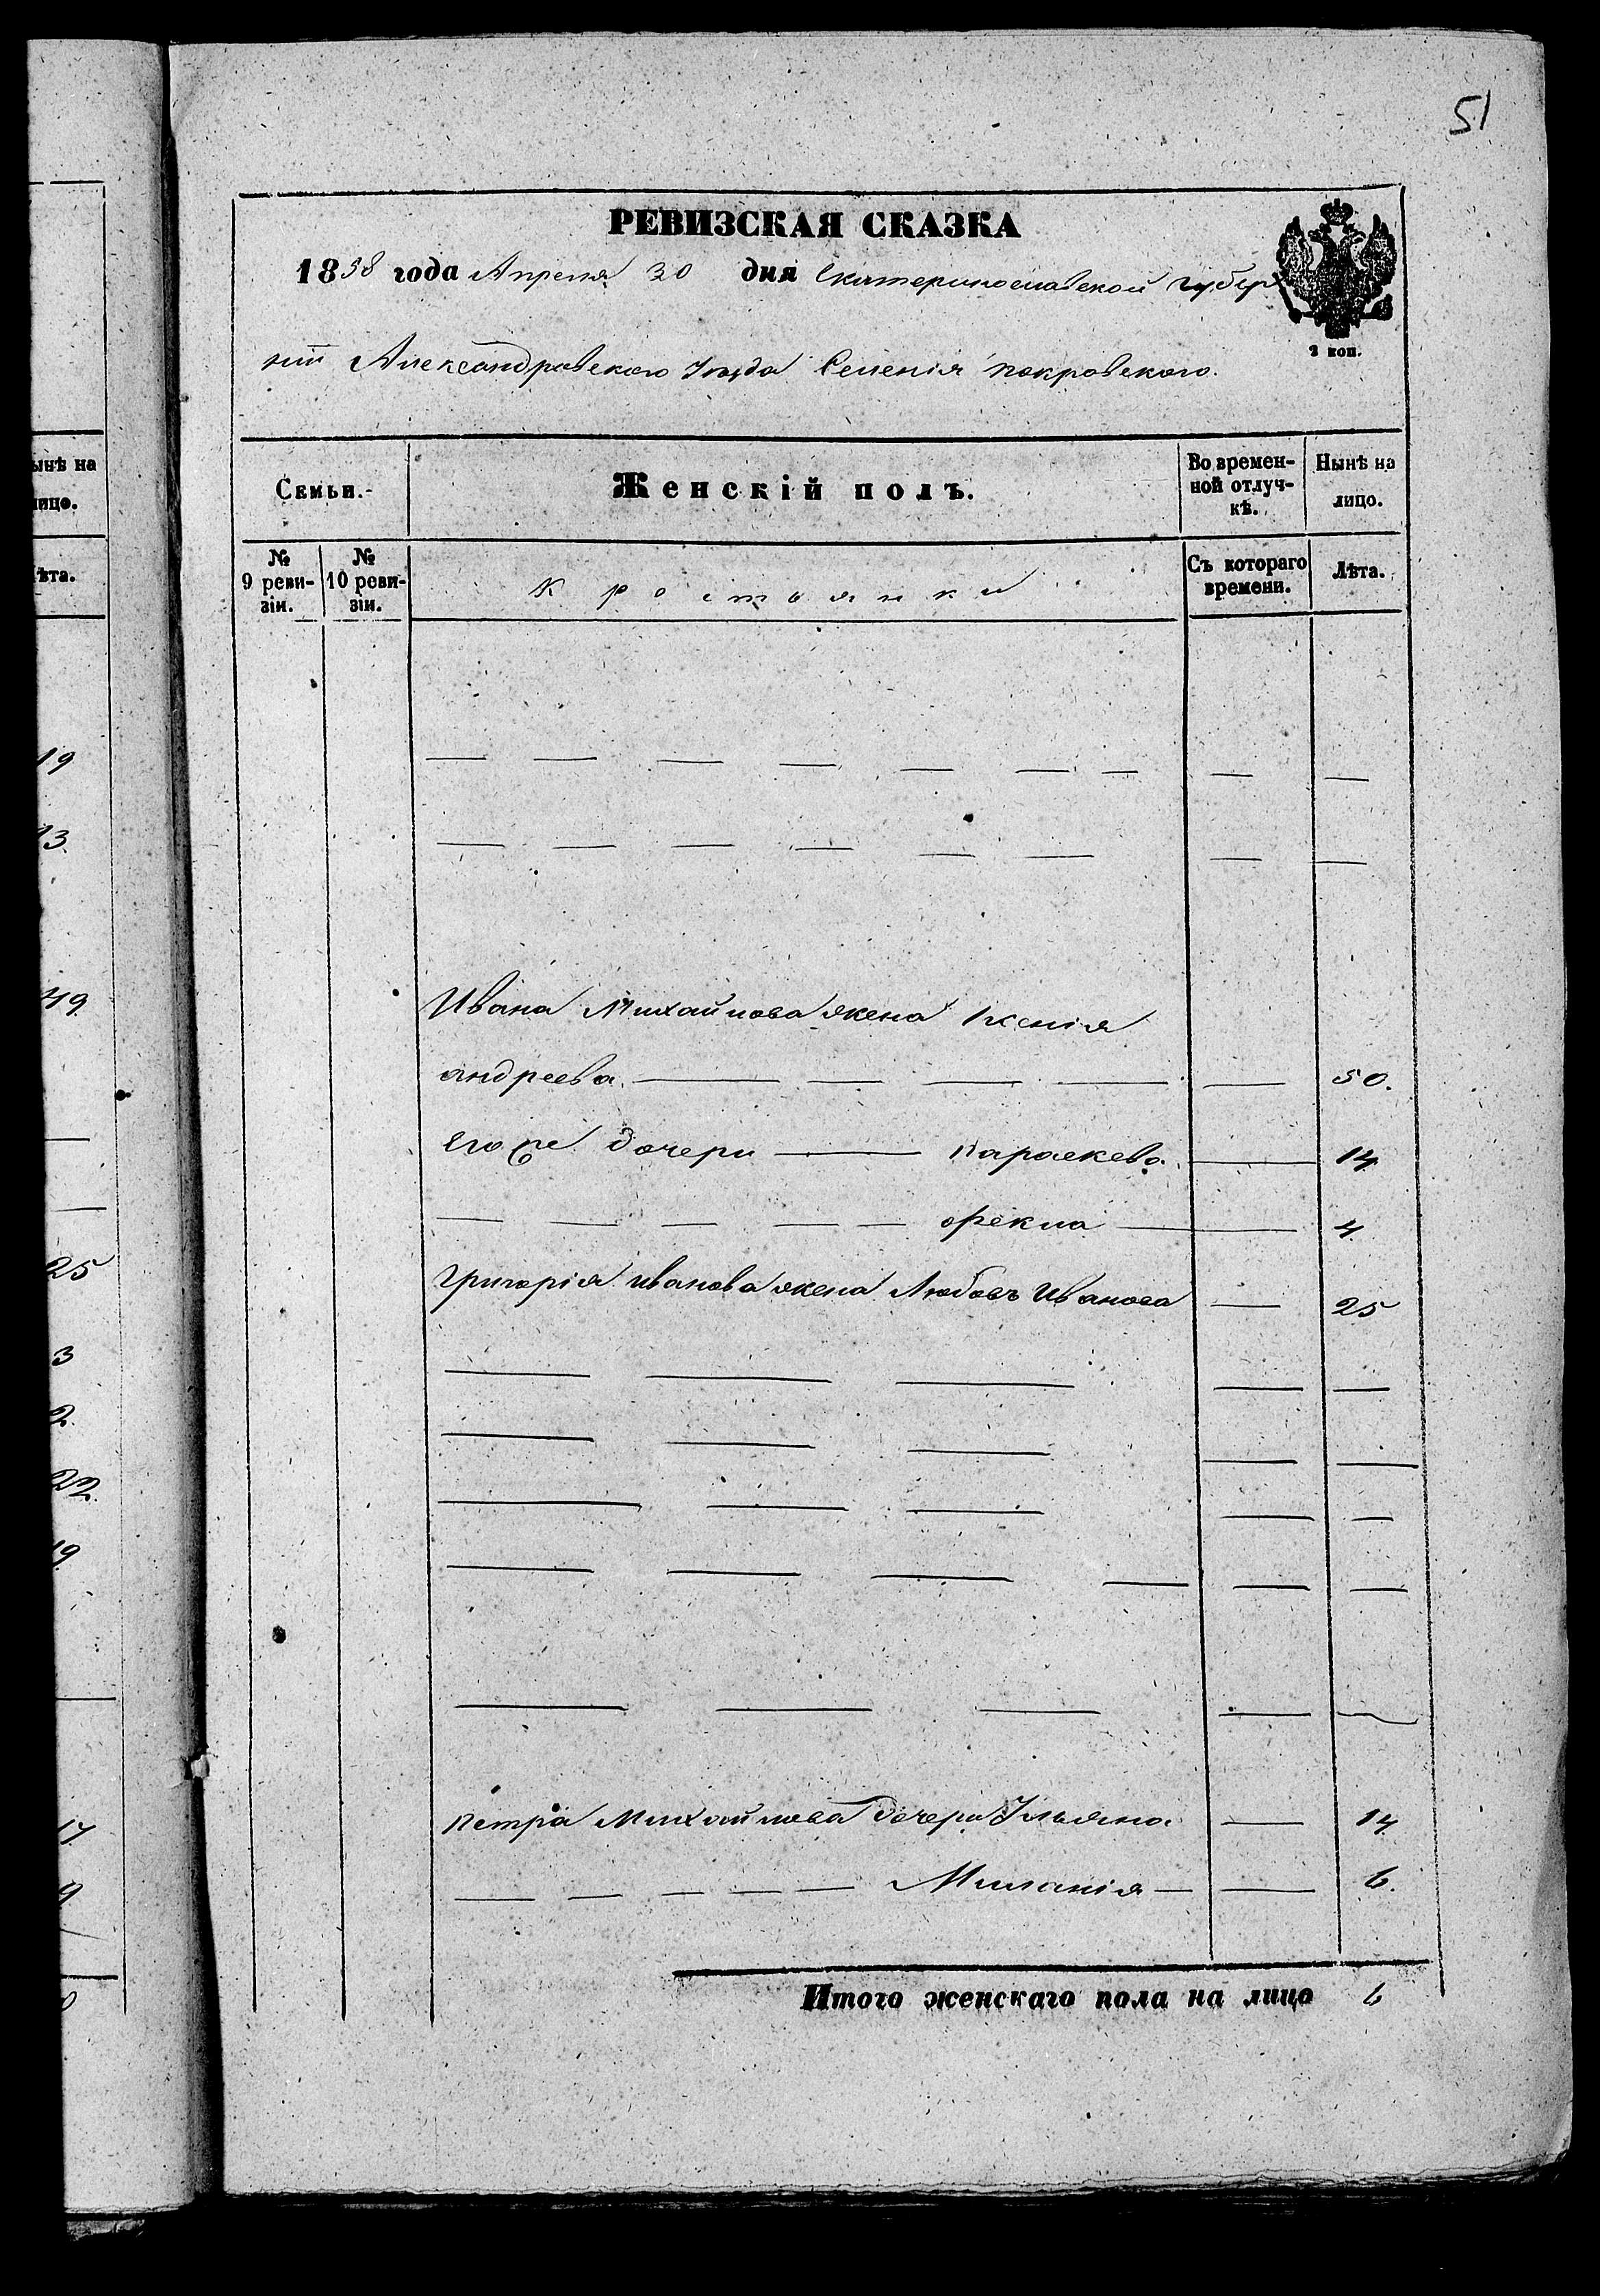 51
РЕВИЗСКАЯ СКАЗКА
1858 года Апреля 30 дня Екатеринославской губер
нiи Александровского Уезда Селенiя Покровского.
2 коп.
Семьи.
Женскiй полъ.
Во времен-
ной отлуч-
кѣ.
Нынѣ на
лицо.
№
9 реви-
зiи.
№
10 реви-
зiи.
Крестьянки
Съ котораго
времени.
Лѣта.
Ивана Михайлова жена Ксенiя
андреева 50.
его же дочери Параскева 14
Фекла 4
Григорiя иванова жена Любовь Иванова 25
Петра Михайлова дочери Ульяна 14
Миланiя 6.
Итого женскаго пола на лицо 6
ынѣ на
лицо.
ѣта.
19
13
49
25
3
2.
22.
19
17
9